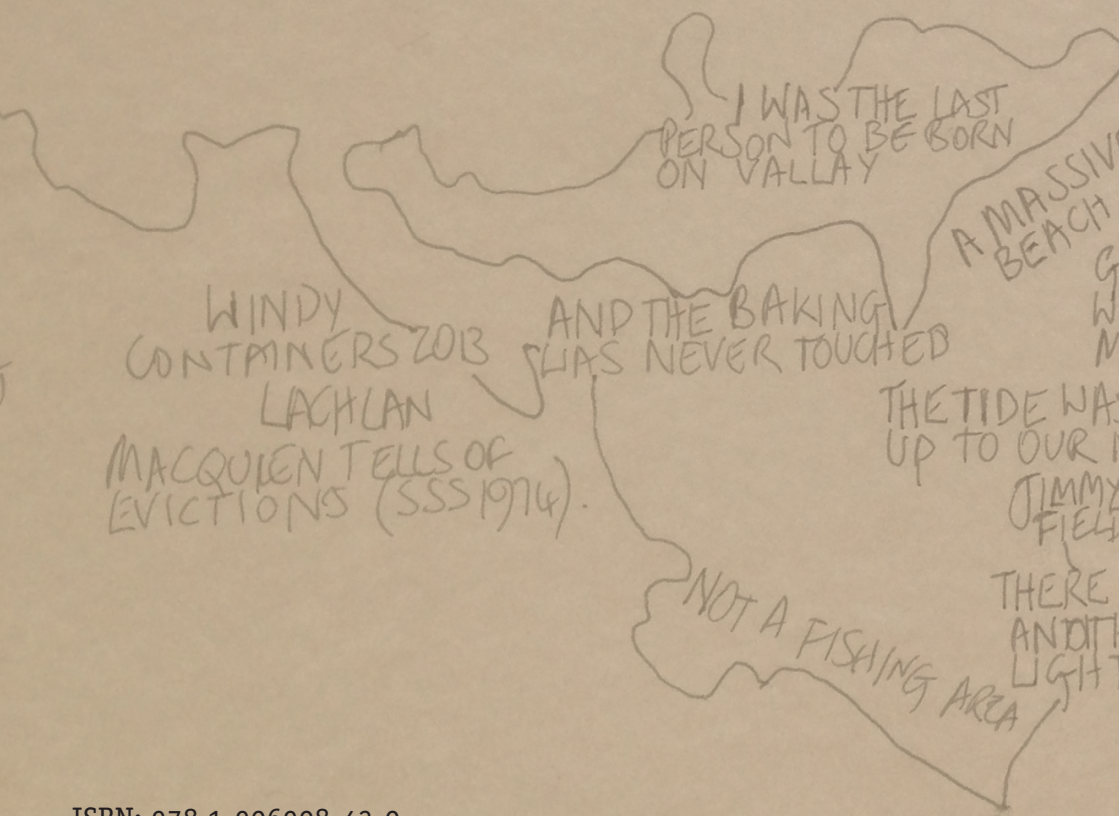 I WAS THE LAST
PERSON TO BE BORN
ON VALLAY
A MASSIVE
BEACH
WINDY
CONTAINERS 2013
LACHLAN
MACQUIEN TELLS OF
EVICTIONS (SSS 1974).
AND THE BAKING
WAS NEVER TOUCHED
THE TIDE WAS
UP TO OUR
JIMMY
NOT A FISHING AREA
THERE
LIGHT
ISBN: